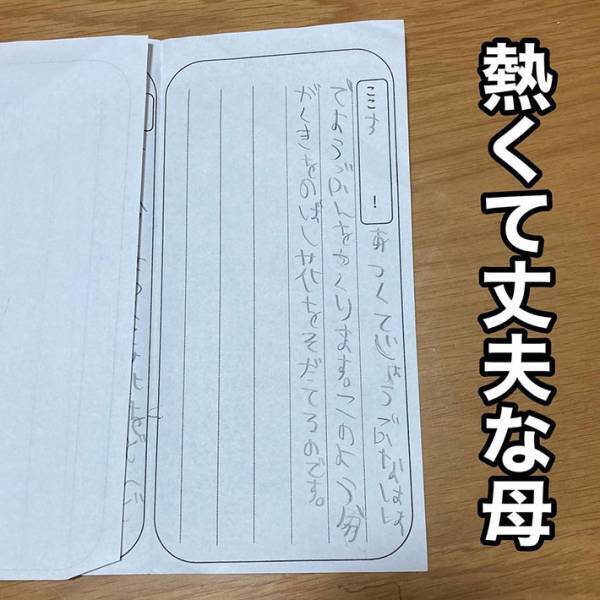 熱くて丈夫な母
ここす！
あつくてじょうぶなはは
でようぶんをつくります。このよう分
がくきをのばし花をそだてるのです。